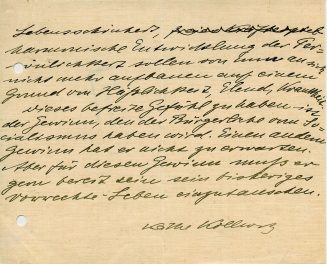 Lebensschönheit,
harmonische Entwicklung der Per-
sönlichkeit sollen von nun an sich
nicht mehr aufbauen auf einem
Grund von Häßlichkeit, Elend, Krankheit
Dieses befreite Gefühl zu haben ist
der Gewinn, den der Bürgerliche vom So-
zialismus haben wird. Einen andern
Gewinn hat er nicht zu erwarten.
Aber für diesen Gewinn muß er
gern bereit sein sein bisheriges
Vorrechts-Leben einzutauschen.
Käthe Kollwitz